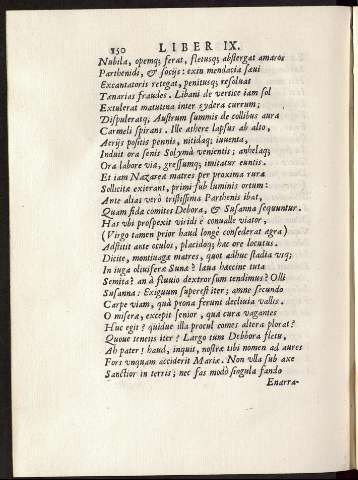 150 LIBER IX.
Nubila, opemq; ferat, fletusq; abstergat amaros
Parthenidi, & socijs: exin mendacia sævi
Excantatoris retegat, penitusq; resoluat
Tænarias fraudes. Libani de vertice iam sol
Extulerat matutina inter sydera currum;
Dispuleratq; Austrum summis de collibus aura
Carmeli spirans. Ille æthere lapsus ab alto,
Aerijs positis pennis, nitidaq; iuuenta,
Induit ora senis Solymâ venientis; anhelaq;
Ora labore via, gressumq; imitatur euntis.
Et iam Nazareæ matres per proxima rura
Sollicitæ exierant, primi sub luminis ortum:
Ante alias verò tristissima Parthenis ibat,
Quam fida comites Debora, & Susanna sequuntur.
Has vbi prospexit viridi è conualle viator,
(Virgo tamen prior haud longè consederat agra)
Adstitit ante oculos, placidoq; hac ore locutus.
Dicite, montiuaga matres, quot adhuc stadia vsq;
In iuga oliuifera Suna? laua hæccine tuta
Semita? an à fluuio dextrorsum tendimus? Olli
Susanna: Exiguum superest iter; amne secundo
Carpe viam, quà prona ferunt decliuia vallis.
O miseræ, excepit senior, quâ curâ vagantes
Huc egit? quidue illa procul comes altera plorat?
Quoue tenetis iter? Largo tum Debbora fletu,
Ah pater! haud, inquit, nostræ tibi nomen ad aures
Fors vnquam acciderit Mariæ. Non vlla sub axe
Sanctior in terris; nec fas modò singula fando
Enarra-